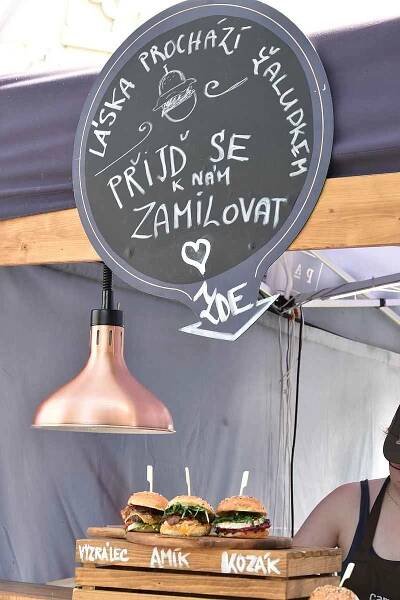 LÁSKA PROCHÁZÍ ŽALUDKEM
PŘIJĎ SE
K NÁM
ZAMILOVAT
ZDE
VYZRÁLEC AMÍK KOZÁK